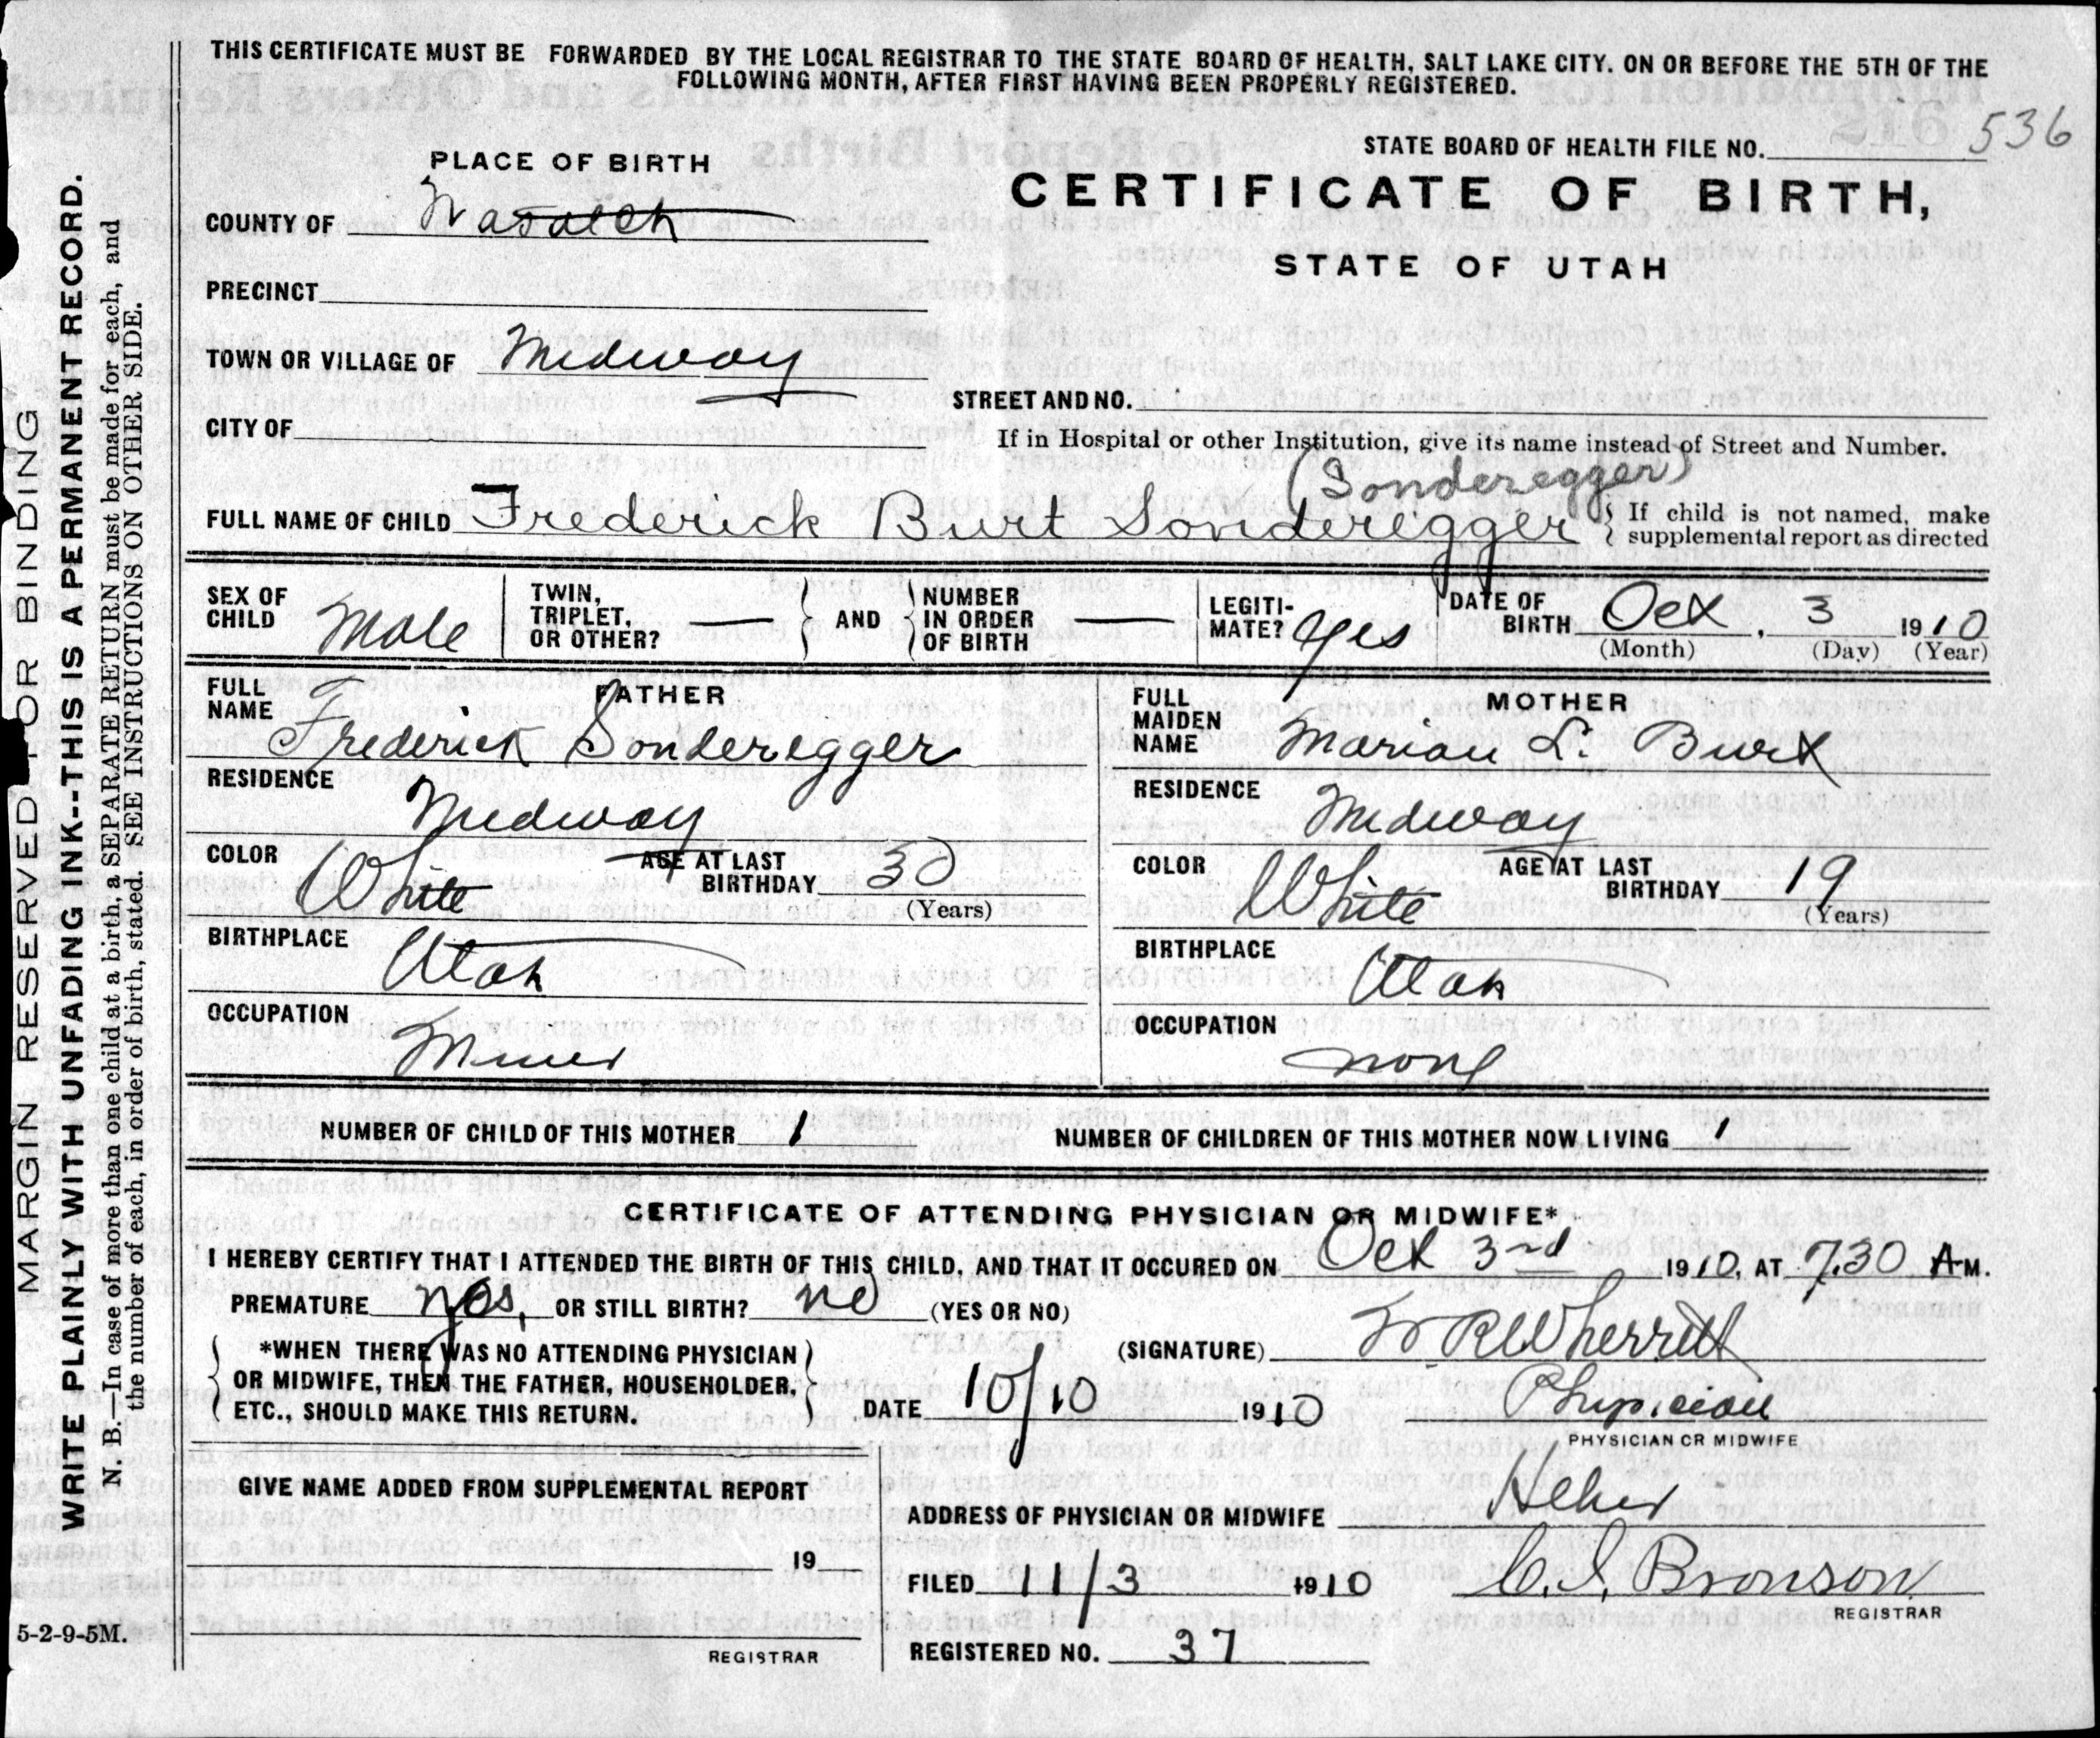 THIS CERTIFICATE MUST BE FORWARDED BY THE LOCAL REGISTRAR TO THE STATE BOARD OF HEALTH, SALT LAKE CITY. ON OR BEFORE THE 5TH OF THE
FOLLOWING MONTH, AFTER FIRST HAVING BEEN PROPERLY REGISTERED.
STATE BOARD OF HEALTH FILE NO. 536
PLACE OF BIRTH
CERTIFICATE OF BIRTH,
COUNTY OF Wasatch
STATE OF UTAH
PRECINCT
TOWN OR VILLAGE OF Midway
STREET AND NO.
CITY OF
If in Hospital or other Institution, give its name instead of Street and Number.
(Sonderegger)
FULL NAME OF CHILD Frederick Burt Sonderigger { If child is not named, make
supplemental report as directed
SEX OF CHILD Male
TWIN, TRIPLET, OR OTHER? — } AND { NUMBER IN ORDER OF BIRTH —
LEGITIMATE? Yes
DATE OF BIRTH Oct. 3 1910
(Month) (Day) (Year)
FATHER
FULL NAME Frederick Sonderegger
RESIDENCE Midway
COLOR White AGE AT LAST BIRTHDAY 30
(Years)
BIRTHPLACE Utah
OCCUPATION Miner
MOTHER
FULL MAIDEN NAME Marian L. Burt
RESIDENCE Midway
COLOR White AGE AT LAST BIRTHDAY 19
(Years)
BIRTHPLACE Utah
OCCUPATION none
NUMBER OF CHILD OF THIS MOTHER 1 NUMBER OF CHILDREN OF THIS MOTHER NOW LIVING 1
CERTIFICATE OF ATTENDING PHYSICIAN OR MIDWIFE*
I HEREBY CERTIFY THAT I ATTENDED THE BIRTH OF THIS CHILD, AND THAT IT OCCURED ON Oct 3rd 1910, AT 7.30 A M.
PREMATURE yes, OR STILL BIRTH? no (YES OR NO)
*WHEN THERE WAS NO ATTENDING PHYSICIAN
OR MIDWIFE, THEN THE FATHER, HOUSEHOLDER,
ETC., SHOULD MAKE THIS RETURN.
(SIGNATURE) W R Wherritt
DATE 10/10 1910 Physician
PHYSICIAN OR MIDWIFE
GIVE NAME ADDED FROM SUPPLEMENTAL REPORT
19
REGISTRAR
ADDRESS OF PHYSICIAN OR MIDWIFE Heber
FILED 11/3 1910 C. S. Bronson
REGISTRAR
REGISTERED NO. 37
5-2-9-5M.
MARGIN RESERVED FOR BINDING
WRITE PLAINLY WITH UNFADING INK--THIS IS A PERMANENT RECORD.
N. B.—In case of more than one child at a birth, a SEPARATE RETURN must be made for each, and
the number of each, in order of birth, stated. SEE INSTRUCTIONS ON OTHER SIDE.